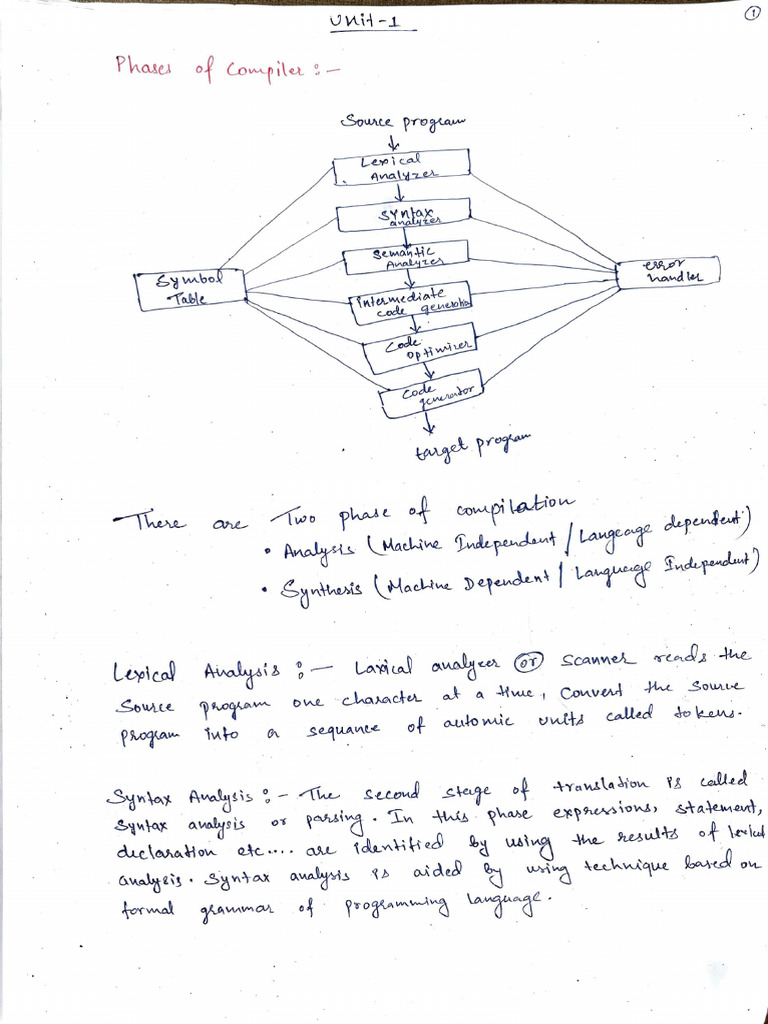 Unit-1
1
Phases of Compiler :-
Source program
Lexical
Analyzer
Syntax
analyzer
Semantic
Analyzer
Symbol
Table
error
handler
intermediate
code generator
Code
Optimizer
Code
generator
target program
There are Two phase of compilation
• Analysis (Machine Independent / Langeage dependent)
• Synthesis (Machine Dependent / Language Independent)
Lexical Analysis :- Laxical analyeer or scanner reads the
Source program one character at a time, Convert the source
program into a sequance of automic units called tokens.
Syntax Analysis :- The second stage of translation is called
Syntax analysis or parsing. In this phase expressions, statement,
declaration etc.... are identified by using the results of lexical
analysis. Syntax analysis is aided by using technique based on
formal grammar of programming language.